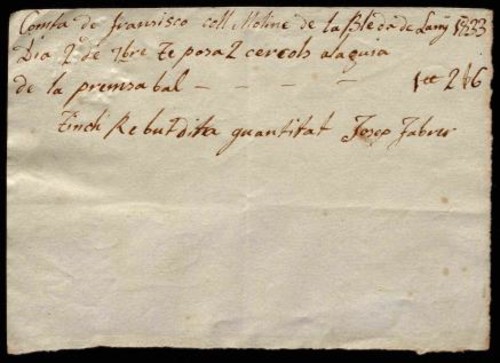 Compta de Fransisco coll Moline de la Bleda de Lany 1833
Dia 2 de 7bre Te posa 2 cercols alaguia
de la premsa bal — — — — 1tt 2 s 6
Tinch Rebut dita quantitat Josep Fabrer